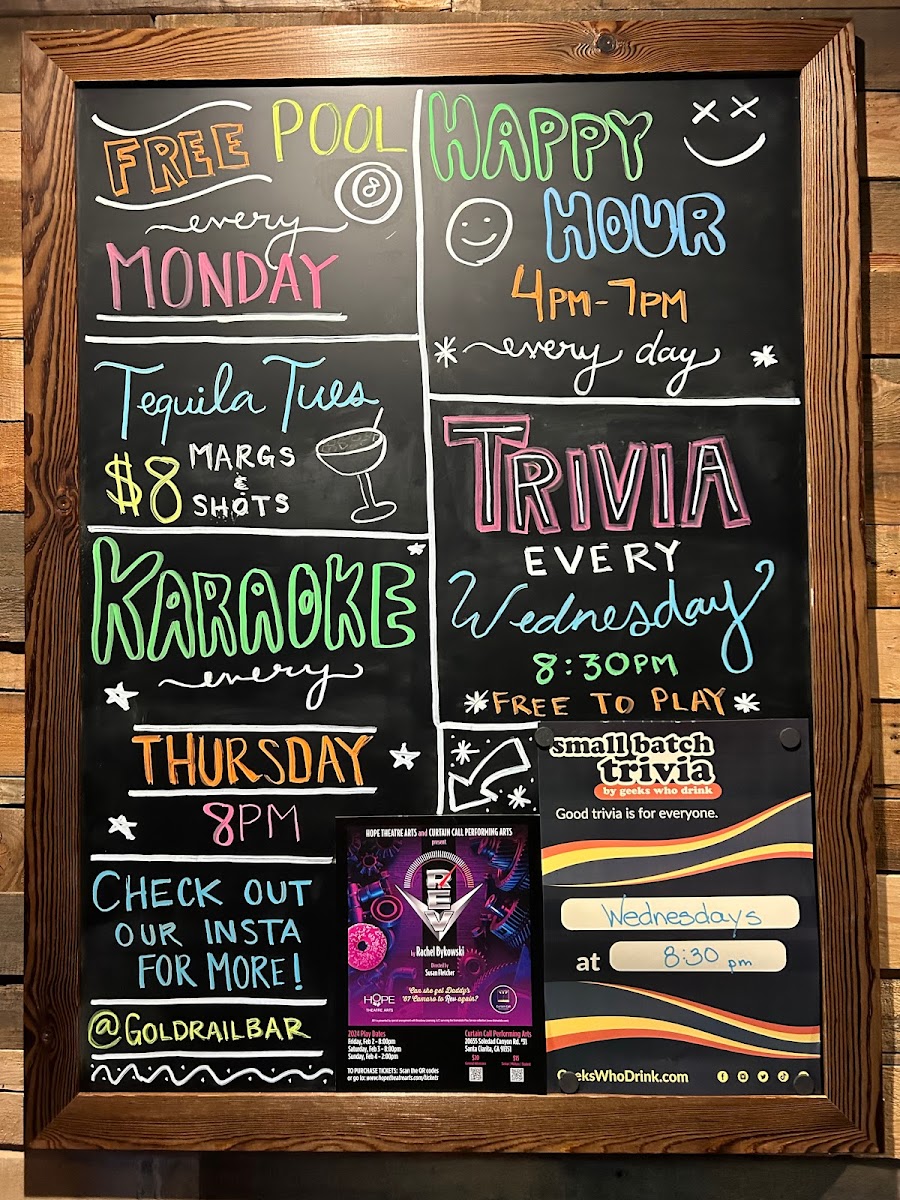 FREE POOL
8
every
MONDAY
HAPPY
HOUR
4PM-7PM
every day
Tequila Tues
$8 MARGS
&
SHOTS
TRIVIA
EVERY
Wednesday
8:30PM
FREE TO PLAY
KARAOKE
every
THURSDAY
8PM
CHECK OUT
OUR INSTA
FOR MORE!
@GOLDRAILBAR
HOPE THEATRE ARTS and CURTAIN CALL PERFORMING ARTS
present
REV
by Rachel Bykowski
Directed by
Susan Fletcher
Can she get Daddy's
'67 Camaro to Rev again?
HOPE
THEATRE ARTS
2024 Play Dates
Friday, Feb 2 - 8:00pm
Saturday, Feb 3 - 8:00pm
Sunday, Feb 4 - 2:00pm
TO PURCHASE TICKETS: Scan the QR codes
or go to: www.hopetheatrearts.com/tickets
Curtain Call Performing Arts
20655 Soledad Canyon Rd. #31
Santa Clarita, CA 91351
$20
$15
small batch
trivia
by geeks who drink
Good trivia is for everyone.
Wednesdays
at 8:30 pm
GeeksWhoDrink.com